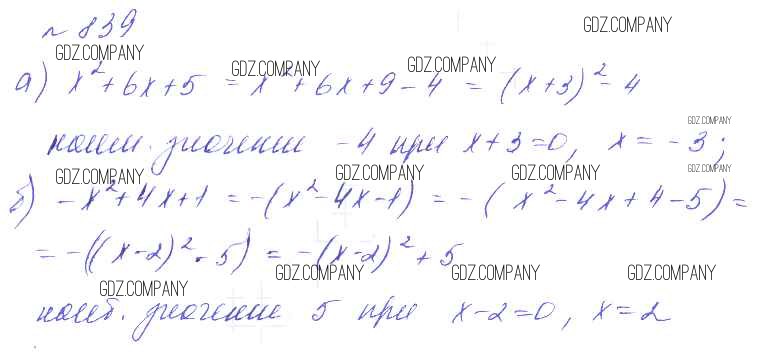 № 839
GDZ.COMPANY GDZ.COMPANY
GDZ.COMPANY GDZ.COMPANY
а) x² + 6x + 5 = x² + 6x + 9 - 4 = (x+3)² - 4
GDZ.COMPANY
наим. значение -4 при x+3=0, x=-3;
GDZ.COMPANY GDZ.COMPANY GDZ.COMPANY GDZ.COMPANY
б) -x²+4x+1 = -(x²-4x-1) = -(x²-4x+4-5) =
= -((x-2)²-5) = -(x-2)²+5
GDZ.COMPANY GDZ.COMPANY GDZ.COMPANY GDZ.COMPANY
наиб. значение 5 при x-2=0, x=2